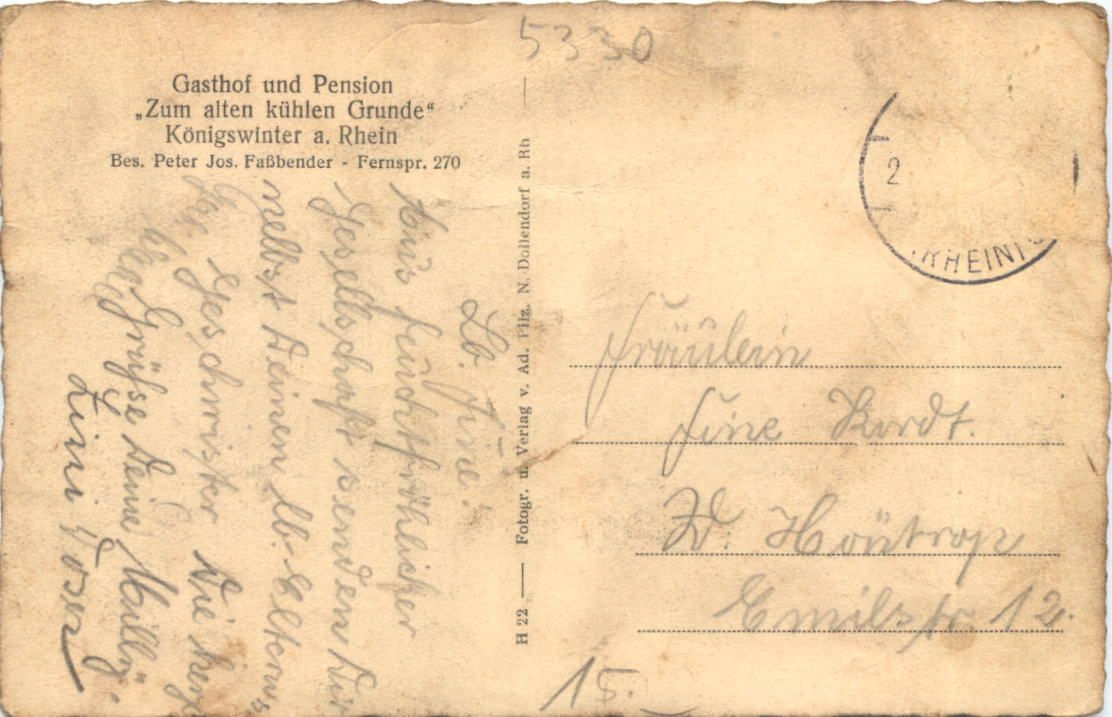 5330
Gasthof und Pension
„Zum alten kühlen Grunde“
Königswinter a. Rhein
Bes. Peter Jos. Faßbender - Fernspr. 270
Lb. Fine!
Aus feuchtfröhlicher
Gesellschaft senden Dir
nebst Deinen lb. Eltern u.
Geschwister die herz
Grüße Deine Milly.
H 22 — Fotogr. u. Verlag v. Ad. Pilz. N. Dollendorf a. Rh
2
RHEIN
Fräulein
Fine Kordt.
W. Höntrop
Emilstr. 12.
15.